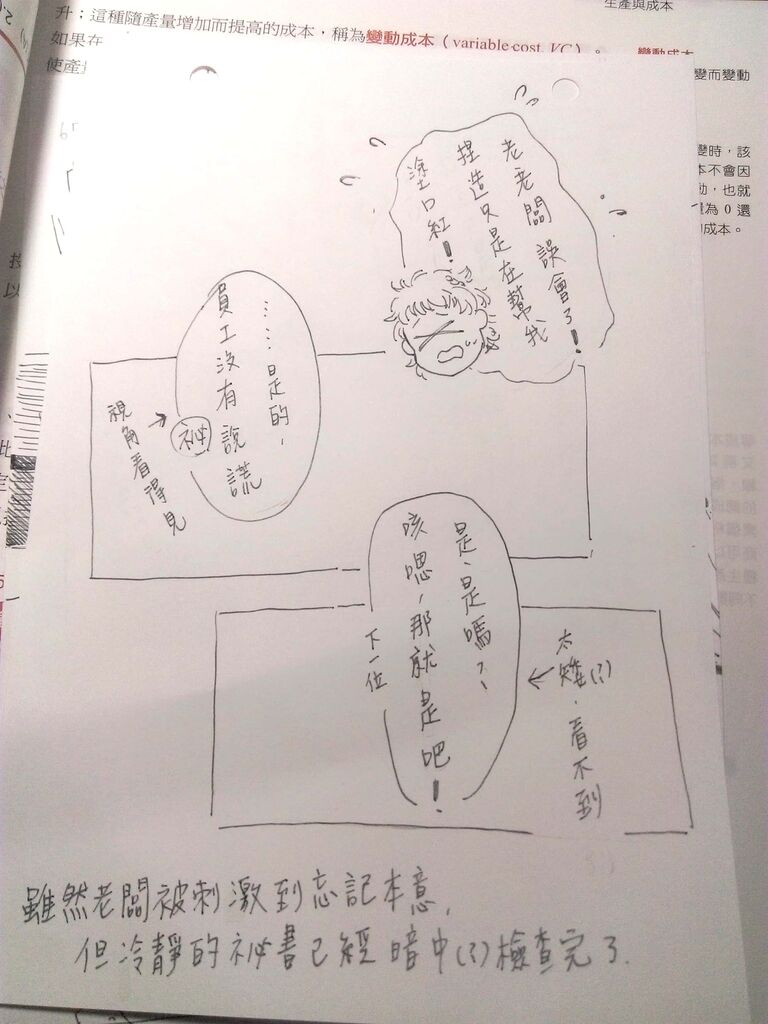 生產與成本
升；這種隨產量增加而提高的成本，稱為變動成本（variable cost, VC）。
變動成本
如果在
使產
變而變動
變時，該
本不會因
動，也就
量為 0 還
的成本。
老老闆誤會了！
捏造只是在幫我
塗口紅！
……是的，
員工沒有說謊
祕
視角看得見
是、是嗎？、
咳嗯，那就是吧！
下一位
太矮(?)，看不到
雖然老闆被刺激到忘記本意，
但冷靜的祕書已經暗中(?)檢查完了.